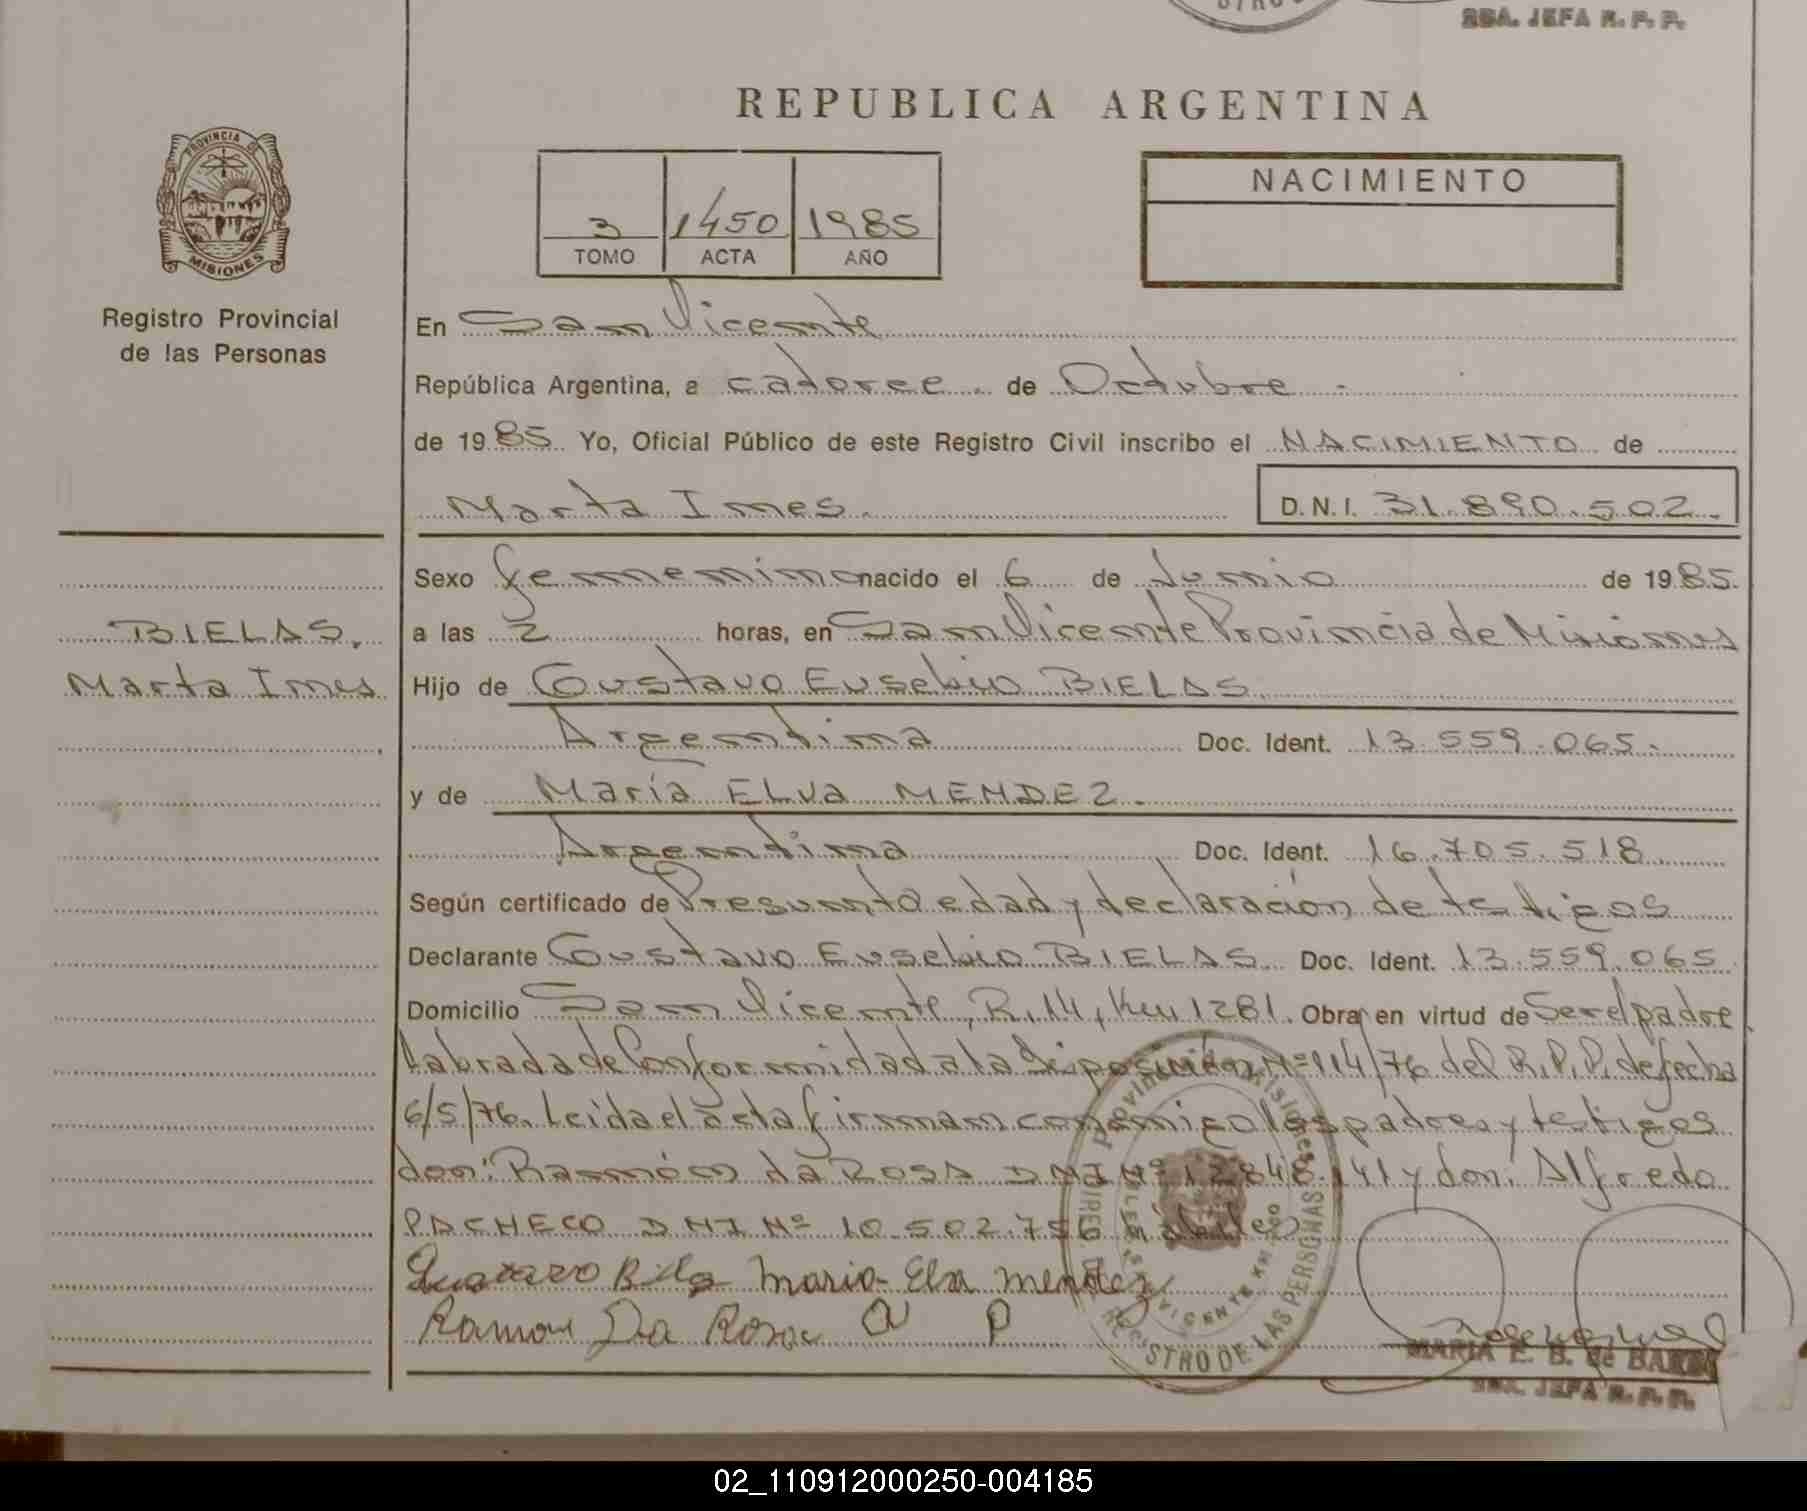 SBA. JEFA R. P. P.
REPUBLICA ARGENTINA
PROVINCIA DE
MISIONES
Registro Provincial
de las Personas
3 1450 1985
TOMO ACTA AÑO
NACIMIENTO
En San Vicente
República Argentina, a catorce de Octubre
de 1985 Yo, Oficial Público de este Registro Civil inscribo el NACIMIENTO de
Marta Ines. D.N.I. 31.890.502.
Sexo femenino nacido el 6 de Junio de 1985.
BIELAS, a las 2 horas, en San Vicente Provincia de Misiones
Marta Ines Hijo de Gustavo Eusebio BIELAS
Argentina Doc. Ident. 13.559.065.
y de María ELVA MENDEZ.
Argentina Doc. Ident. 16.705.518
Según certificado de Presunta edad y declaración de testigos
Declarante Gustavo Eusebio BIELAS Doc. Ident. 13.559.065
Domicilio San Vicente, R. 14, Km 1281. Obra en virtud de Ser el padre
Labrada de Conformidad a la Disposición Nº 114/76 del R.P.P. de fecha
6/5/76. Leida el acta firman conmigo los padres y testigos
don: Ramón da ROSA DNI Nº 12.848.141 y don: Alfredo
PACHECO DNI Nº 10.502.756
Gustavo Bilas Maria Elva Mendez
Ramon Da Rosa A P
MARIA E. B. de
SBA. JEFA R. P. P.
Provincia de Misiones
REGISTRO DE LAS PERSONAS
02_110912000250-004185